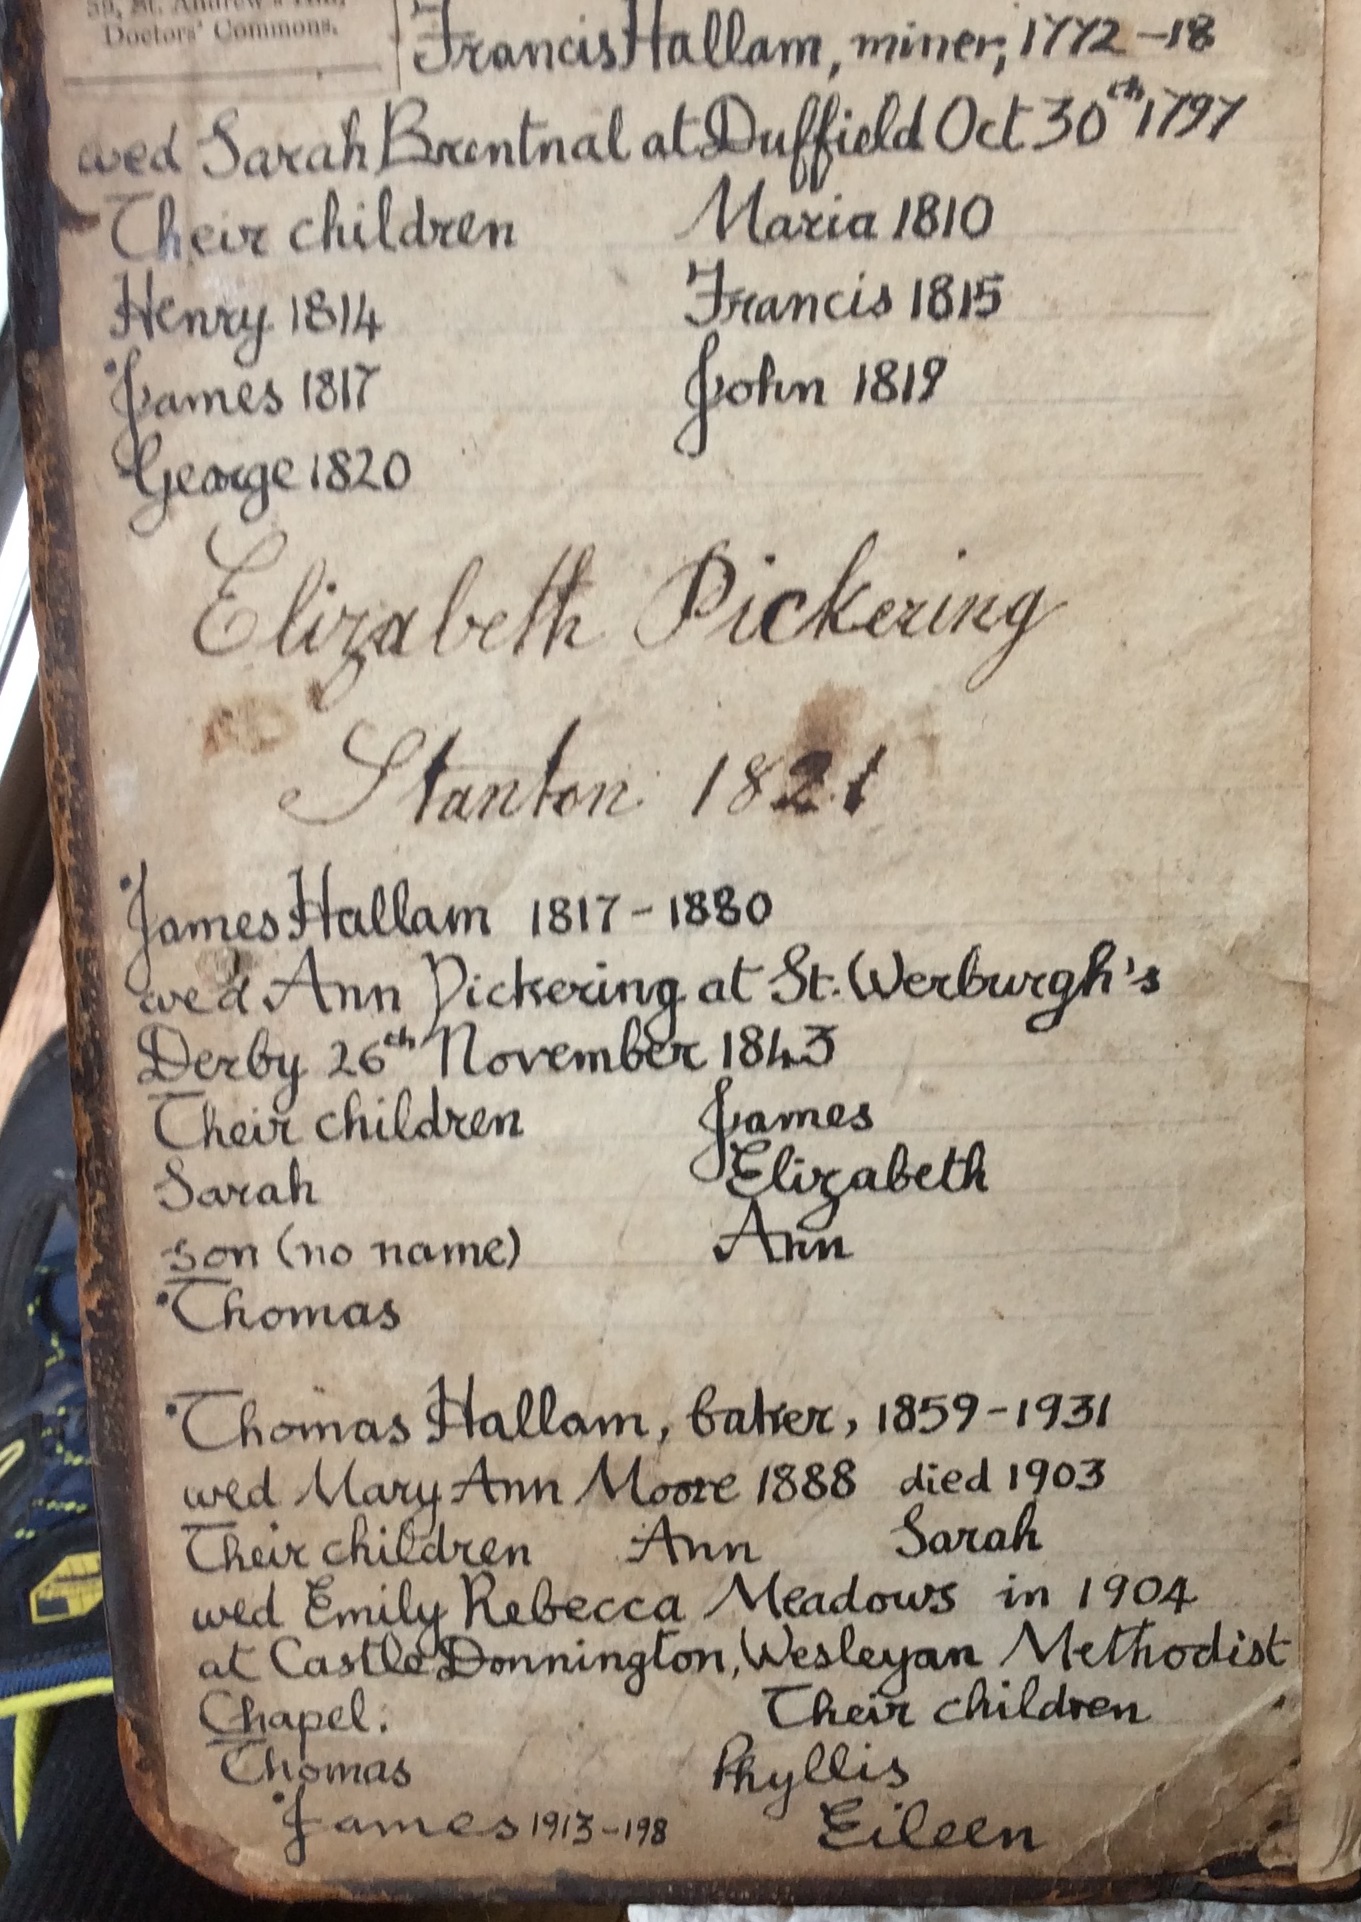 39, St. Andrew's Hill,
Doctors' Commons.
Francis Hallam, miner, 1772-18
wed Sarah Brentnal at Duffield Oct 30th 1797
Their children Maria 1810
Henry 1814 Francis 1815
James 1817 John 1819
George 1820
Elizabeth Pickering
Stanton 1821
James Hallam 1817-1880
wed Ann Pickering at St. Werburgh's
Derby 26th November 1843
Their children James
Sarah Elizabeth
son (no name) Ann
Thomas
Thomas Hallam, baker, 1859-1931
wed Mary Ann Moore 1888 died 1903
Their children Ann Sarah
wed Emily Rebecca Meadows in 1904
at Castle Donnington, Wesleyan Methodist
Chapel. Their children
Thomas Phyllis
James 1913-198 Eileen